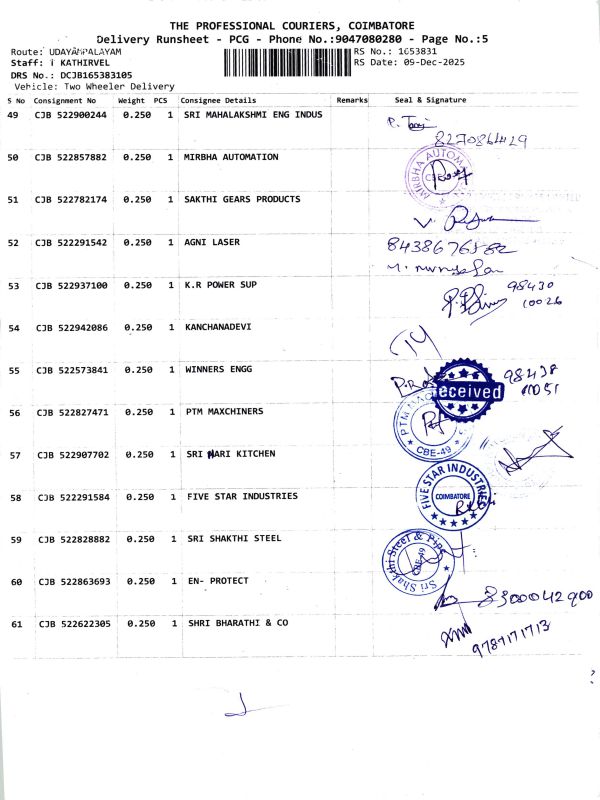 THE PROFESSIONAL COURIERS, COIMBATORE
Delivery Runsheet - PCG - Phone No.:9047080280 - Page No.:5
Route: UDAYAMPALAYAM
RS No.: 1653831
Staff: T KATHIRVEL
RS Date: 09-Dec-2025
DRS No.: DCJB165383105
Vehicle: Two Wheeler Delivery
S No Consignment No Weight PCS Consignee Details Remarks Seal & Signature
49 CJB 522900244 0.250 1 SRI MAHALAKSHMI ENG INDUS
8270864429
50 CJB 522857882 0.250 1 MIRBHA AUTOMATION
MIRBHA AUTOMA
CBE
51 CJB 522782174 0.250 1 SAKTHI GEARS PRODUCTS
52 CJB 522291542 0.250 1 AGNI LASER
53 CJB 522937100 0.250 1 K.R POWER SUP
98430
10026
54 CJB 522942086 0.250 1 KANCHANADEVI
55 CJB 522573841 0.250 1 WINNERS ENGG
received
98438
56 CJB 522827471 0.250 1 PTM MAXCHINERS
PTM MAC
CBE-49
57 CJB 522907702 0.250 1 SRI HARI KITCHEN
58 CJB 522291584 0.250 1 FIVE STAR INDUSTRIES
FIVE STAR INDUSTRIES
COIMBATORE
59 CJB 522828882 0.250 1 SRI SHAKTHI STEEL
Sri Shakthi Steel & Pipe
CBE-49
60 CJB 522863693 0.250 1 EN- PROTECT
8300042900
61 CJB 522622305 0.250 1 SHRI BHARATHI & CO
9787171713